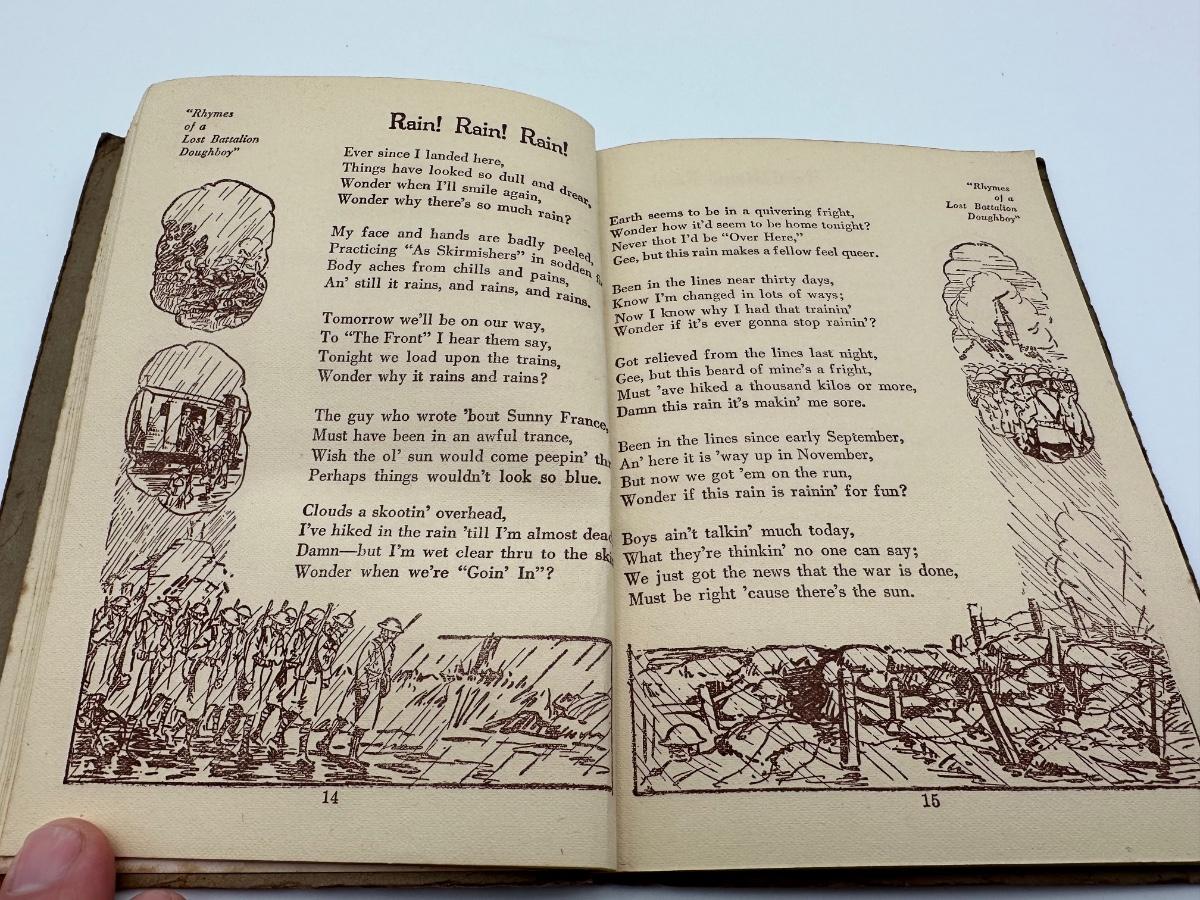 "Rhymes
of a
Lost Battalion
Doughboy"
Rain! Rain! Rain!
Ever since I landed here,
Things have looked so dull and drear,
Wonder when I'll smile again,
Wonder why there's so much rain?
My face and hands are badly peeled,
Practicing "As Skirmishers" in sodden
Body aches from chills and pains,
An' still it rains, and rains, and rains.
Tomorrow we'll be on our way,
To "The Front" I hear them say,
Tonight we load upon the trains,
Wonder why it rains and rains?
The guy who wrote 'bout Sunny France,
Must have been in an awful trance,
Wish the ol' sun would come peepin'
Perhaps things wouldn't look so blue.
Clouds a skootin' overhead,
I've hiked in the rain 'till I'm almost
Damn—but I'm wet clear thru to the
Wonder when we're "Goin' In"?
14
"Rhymes
of a
Lost Battalion
Doughboy"
Earth seems to be in a quivering fright,
Wonder how it'd seem to be home tonight?
Never thot I'd be "Over Here,"
Gee, but this rain makes a fellow feel queer.
Been in the lines near thirty days,
Know I'm changed in lots of ways;
Now I know why I had that trainin'
Wonder if it's ever gonna stop rainin'?
Got relieved from the lines last night,
Gee, but this beard of mine's a fright,
Must 'ave hiked a thousand kilos or more,
Damn this rain it's makin' me sore.
Been in the lines since early September,
An' here it is 'way up in November,
But now we got 'em on the run,
Wonder if this rain is rainin' for fun?
Boys ain't talkin' much today,
What they're thinkin' no one can say;
We just got the news that the war is done,
Must be right 'cause there's the sun.
15